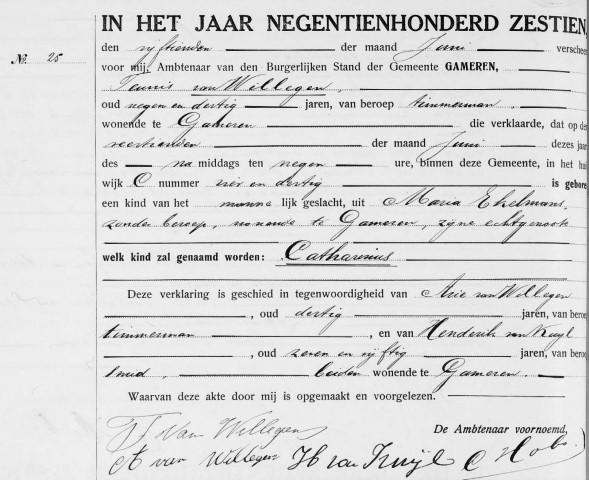 IN HET JAAR NEGENTIENHONDERD ZESTIEN,
No. 25
den vijftienden der maand Juni versche
voor mij, Ambtenaar van den Burgerlijken Stand der Gemeente GAMEREN,
Teunis van Willegen,
oud negen en dertig jaren, van beroep timmerman,
wonende te Gameren die verklaarde, dat op de
veertienden der maand Juni dezes jaar
des na middags ten negen ure, binnen deze Gemeente, in het hui
wijk C nummer vier en dertig is gebore
een kind van het manne lijk geslacht, uit Maria Ekelmans,
zonder beroep, wonende te Gameren, zijne echtgenoote
welk kind zal genaamd worden: Catharinus
Deze verklaring is geschied in tegenwoordigheid van Arie van Willegen
, oud dertig jaren, van beroe
timmerman, en van Henderik van Kuyl
, oud zeven en vijftig jaren, van beroe
smid, beiden wonende te Gameren.
Waarvan deze akte door mij is opgemaakt en voorgelezen.
De Ambtenaar voornoemd,
T Van Willegen
A van Willegen H van Kuijl C Hobo